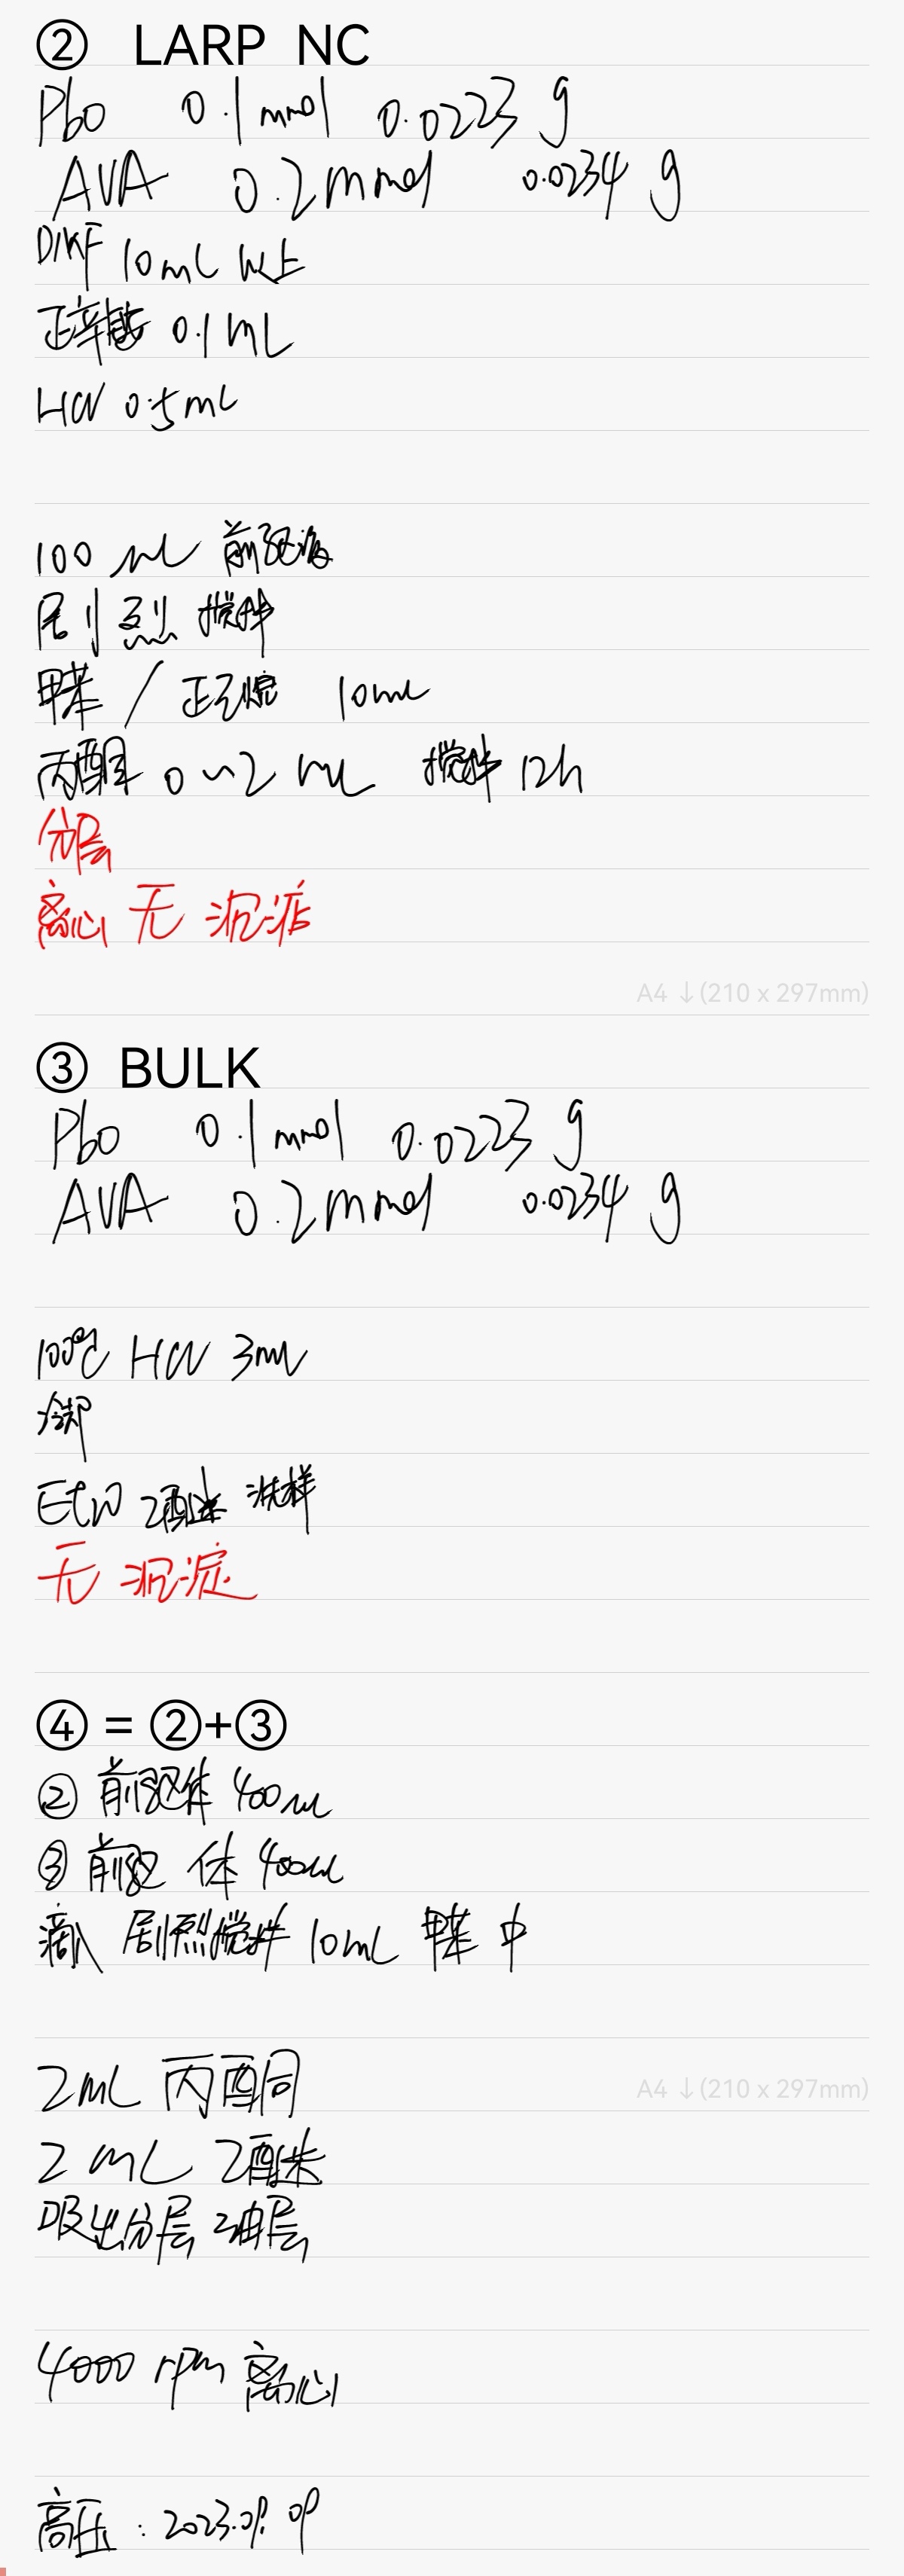 ② LARP NC
PbO 0.1 mmol 0.0223 g
AVA 0.2 mmol 0.0234 g
DMF 10 mL 以上
正辛胺 0.1 mL
HCl 0.5 mL
100 μL 前驱液
剧烈 搅拌
甲苯 / 正己烷 10 mL
丙酮 0~2 mL 搅拌 12h
分层
离心 无 沉淀
A4 ↓(210 x 297mm)
③ BULK
PbO 0.1 mmol 0.0223 g
AVA 0.2 mmol 0.0234 g
100℃ HCl 3 mL
冷却
乙醚 洗样
无 沉淀
④ = ②+③
② 前驱体 400 μL
③ 前驱体 400 μL
滴入 剧烈搅拌 10 mL 甲苯 中
2 mL 丙酮
A4 ↓(210 x 297mm)
2 mL 乙醚
吸出分层 油层
4000 rpm 离心
高压 : 2023.09.09